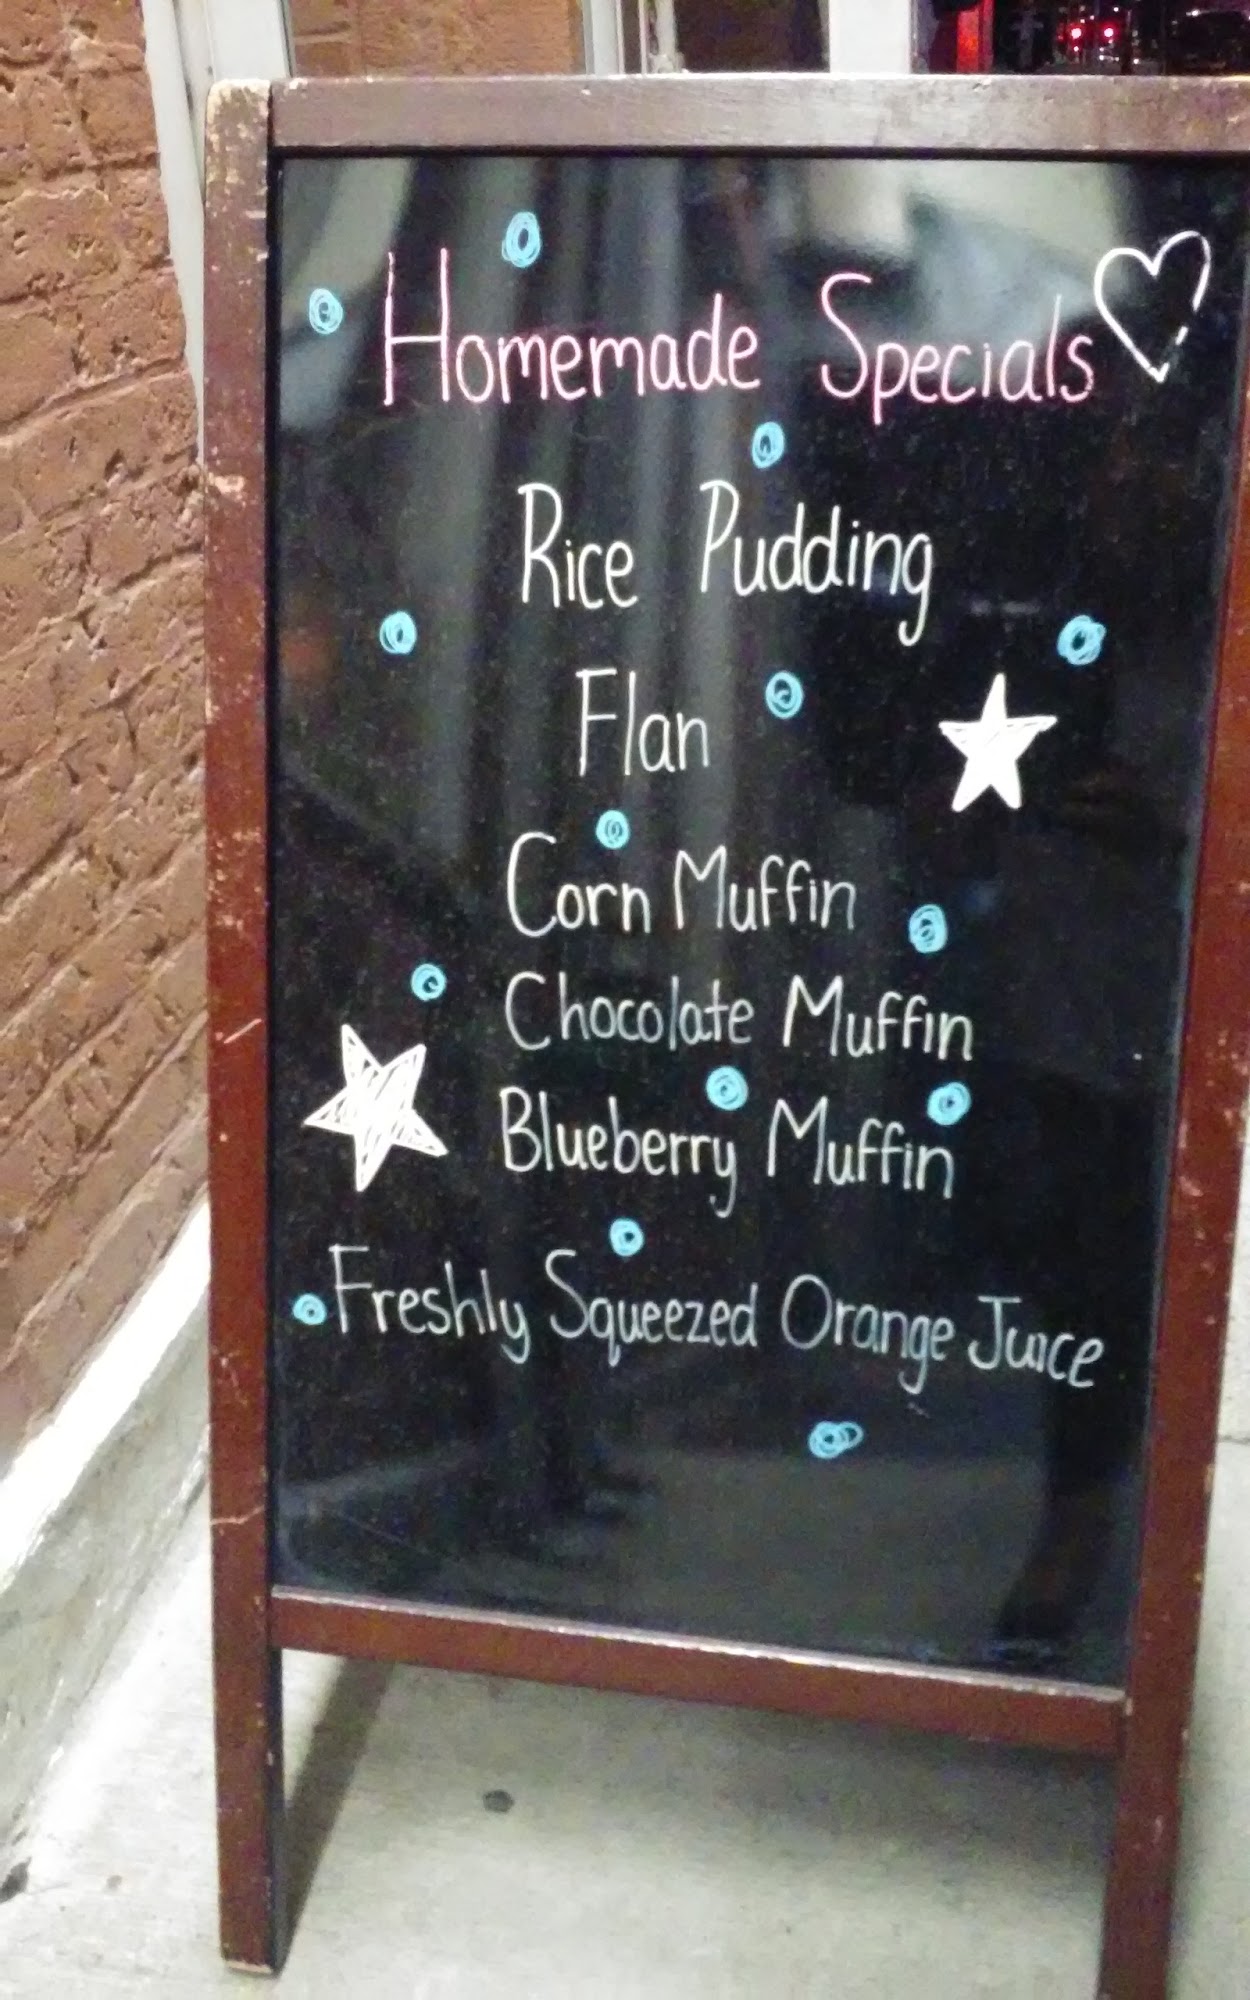 Homemade Specials
Rice Pudding
Flan
Corn Muffin
Chocolate Muffin
Blueberry Muffin
Freshly Squeezed Orange Juice